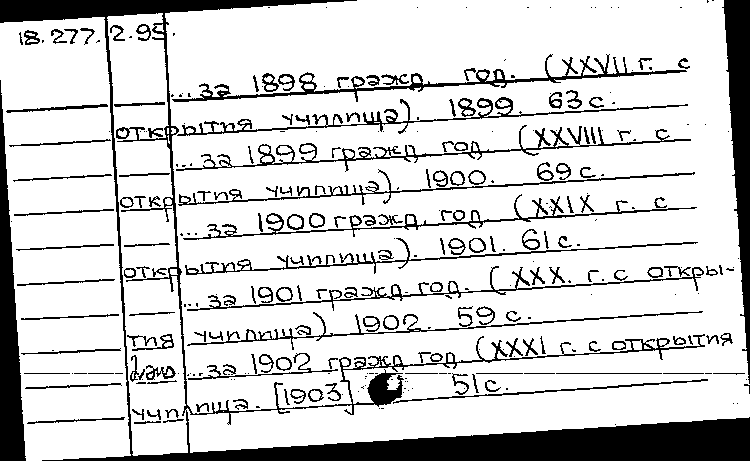 18.277.2.95.
...за 1898 гражд. год. (XXVII г. с
открытия училища). 1899. 63 с.
...за 1899 гражд. год (XXVIII г. с
открытия училища). 1900. 69 с.
...за 1900 гражд. год (XXIX г. с
открытия училища). 1901. 61 с.
...за 1901 гражд. год. (XXX. г. с откры-
тия училища). 1902. 59 с.
...за 1902 гражд. год (XXXI г. с открытия
училища. [1903] 51 с.